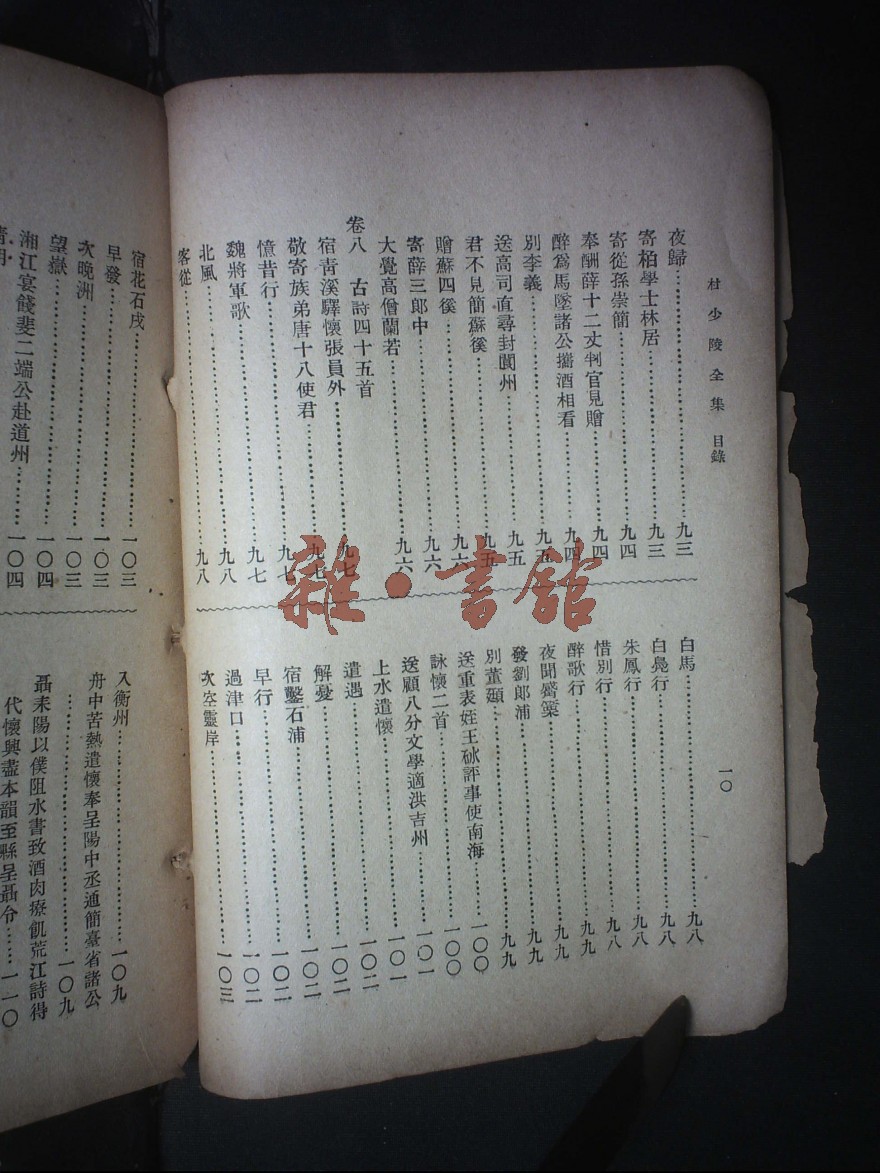 杜少陵全集 目錄
一〇
夜歸……九三
寄柏學士林居……九三
寄從孫崇簡……九四
奉酬薛十二丈判官見贈……九四
醉爲馬墜諸公攜酒相看……九四
別李義……九五
送高司直尋封閬州……九五
君不見簡蘇徯……九五
贈蘇四徯……九六
寄薛三郎中……九六
大覺高僧蘭若……九六
卷八 古詩四十五首
宿青溪驛懷張員外……九七
敬寄族弟唐十八使君……九七
憶昔行……九七
魏將軍歌……九七
北風……九八
客從……九八
白馬……九八
白鳧行……九八
朱鳳行……九八
惜別行……九八
醉歌行……九九
夜聞觱篥……九九
發劉郎浦……九九
別董頲……九九
送重表姪王砅評事使南海……一〇〇
詠懷二首……一〇〇
送顧八分文學適洪吉州……一〇一
上水遣懷……一〇一
遣遇……一〇二
解憂……一〇二
宿鑿石浦……一〇二
早行……一〇二
過津口……一〇二
次空靈岸……一〇三
宿花石戍……一〇三
早發……一〇三
次晚洲……一〇三
望嶽……一〇四
湘江宴餞裴二端公赴道州……一〇四
入衡州……一〇九
舟中苦熱遣懷奉呈陽中丞通簡臺省諸公
……一〇九
聶耒陽以僕阻水書致酒肉療飢荒江詩得
代懷興盡本韻至縣呈聶令……一一〇
雜·書館